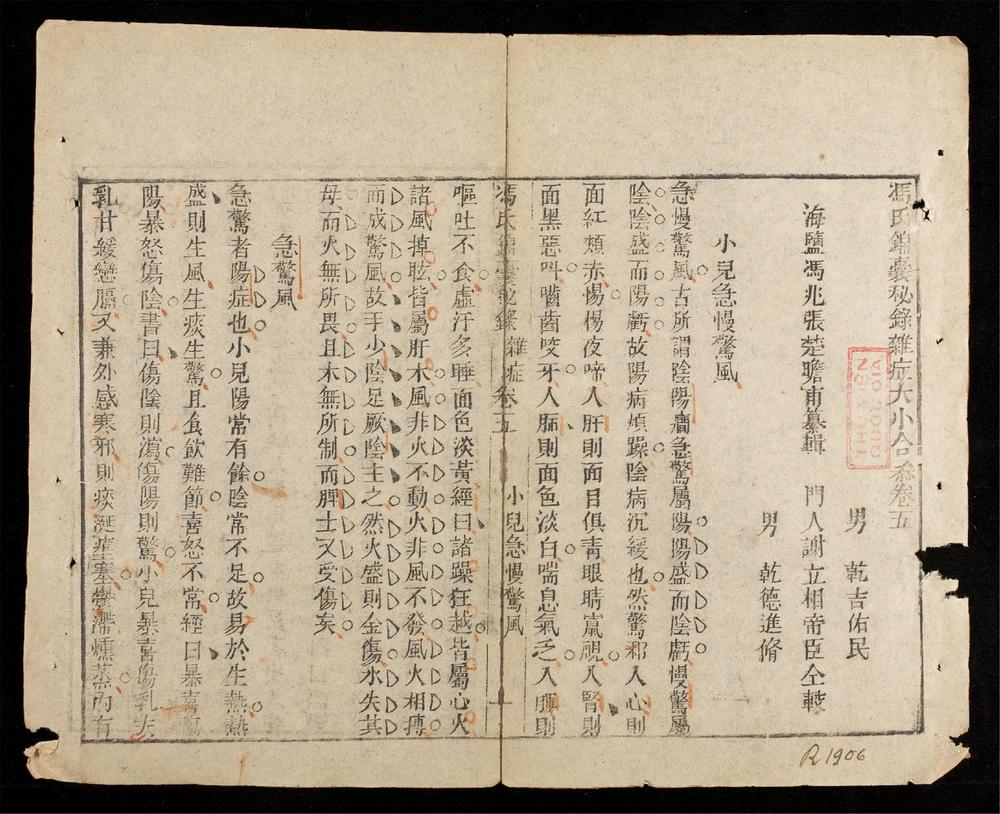 馮氏錦囊秘錄雜症大小合參卷五
海鹽馮兆張楚瞻甫纂輯
門人謝立相帝臣仝較
男 乾吉佑民
男 乾德進脩
小兒急慢驚風
急慢驚風古所謂陰陽癇急驚屬陽陽盛而陰虧慢驚屬
陰陰盛而陽虧故陽病煩躁陰病沉緩也然驚邪入心則
面紅頰赤惕惕夜啼入肝則面目俱青眼睛竄視入腎則
面黑惡叫嚙齒咬牙入肺則面色淡白喘息氣乏入脾則
馮氏錦囊秘錄 雜症 卷五 小兒急慢驚風 一
嘔吐不食虛汗多睡面色淡黃經曰諸躁狂越皆屬心火
諸風掉眩皆屬肝木風非火不動火非風不發風火相搏
而成驚風故手少陰足厥陰主之然火盛則金傷水失其
母而火無所畏且木無所制而脾土又受傷矣
急驚風
急驚者陽症也小兒陽常有餘陰常不足故易於生熱熱
盛則生風生痰生驚且食飲難節喜怒不常經曰暴喜傷
陽暴怒傷陰書曰傷陰則瀉傷陽則驚小兒暴喜傷乳夫
乳甘緩戀膈又兼外感寒邪則痰涎壅塞鬱滯燻蒸而有
THƯ VIỆN
QUỐC GIA
R.1906